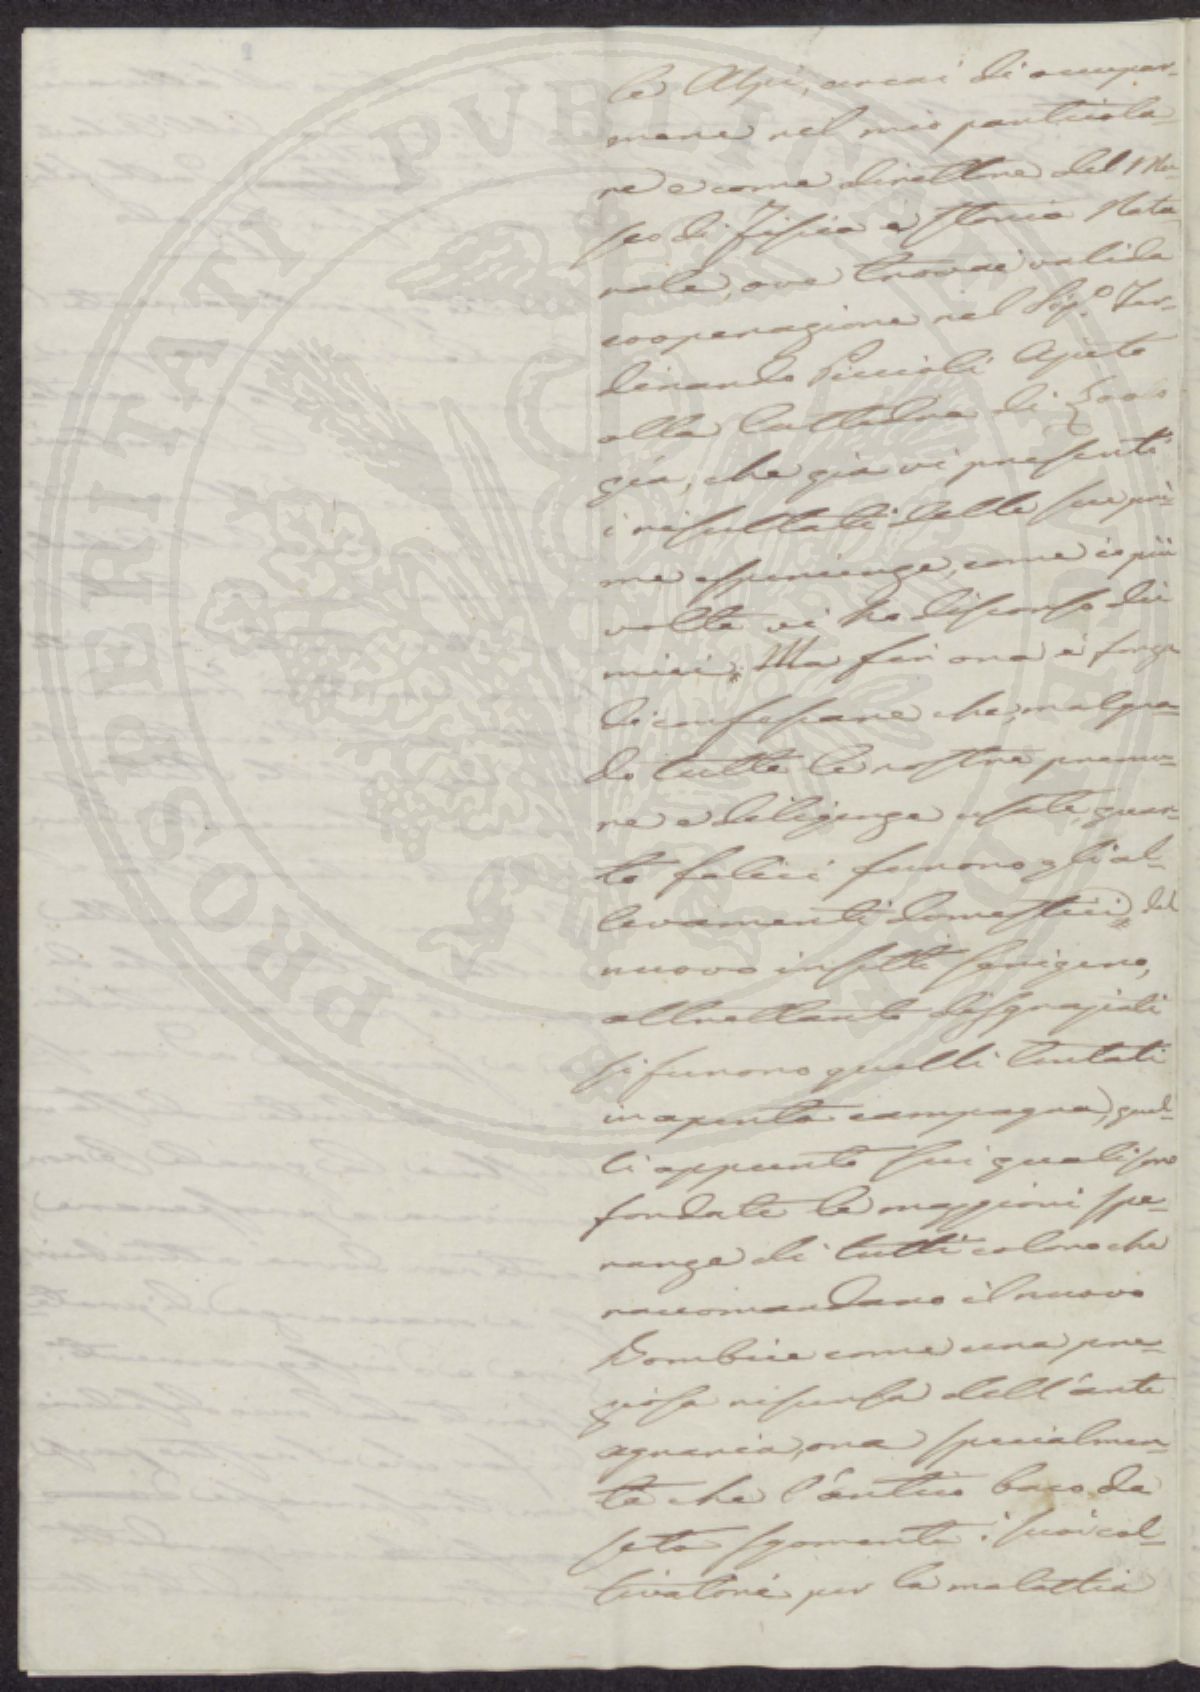 le Alpi, cercai di occupar-
mene nel mio particola-
re e come direttore del Mu-
seo di Fisica e Storia Natu-
rale, ove trovai valida
cooperazione nel Sig.e Fer-
dinando Piccioli Ajuto
alla Cattedra di Zoolo-
gia, che già vi presentò
i resultati delle sue pri-
me esperienze, come io più
volte vi ho discorso dei
miei. Ma fin ora è forza
di confessare che, malgra-
do tutte le nostre premu-
re e diligenze usate, quan-
to felici furono gli al-
levamenti domestici, del
nuovo insetto serigeno,
altrettanto disgraziati
si furono quelli tentati
in aperta campagna, quel-
li appunto sui quali sono
fondate le maggiori spe-
ranze di tutti coloro che
raccomandano il nuovo
Bombice come una pre-
ziosa risorsa dell'arte
agraria, ora specialmen-
te che l'antico baco da
seta sgomenta i suoi col-
tivatori per la malattia
PROSPERITATI PVBLICAE